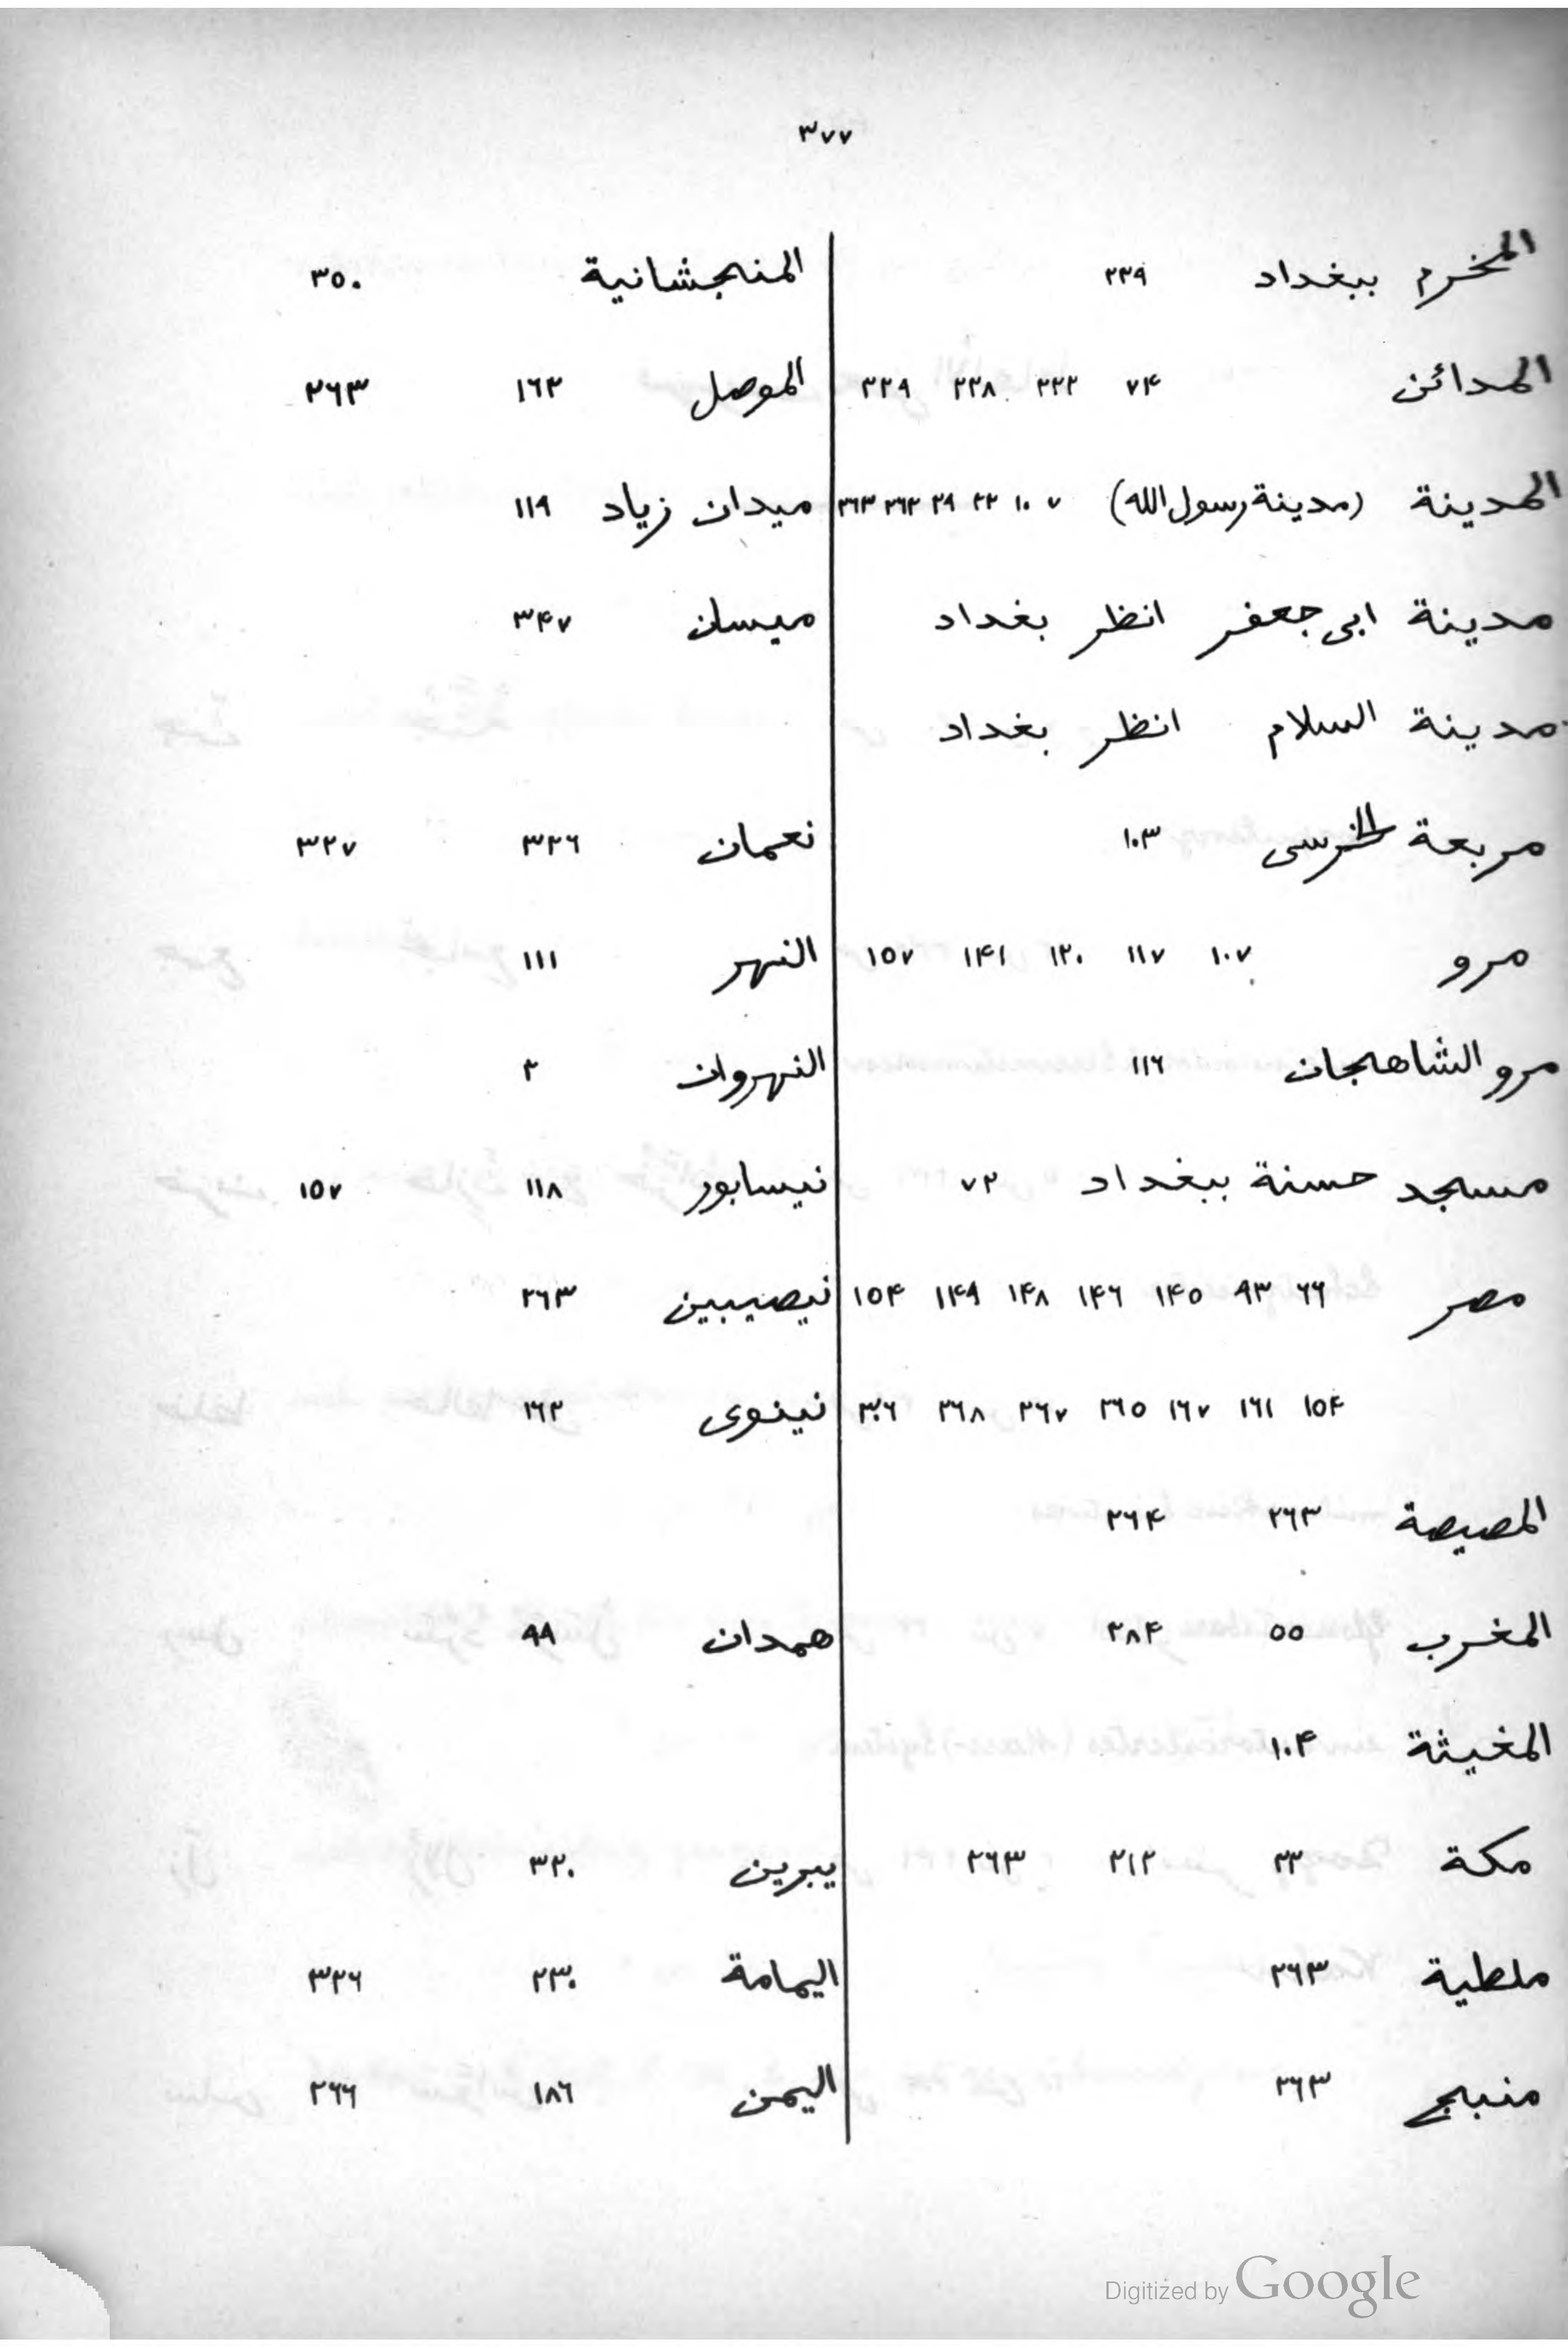 ٣٧٧
المخرم ببغداد ٢٣٩
المدائن ٧۴ ٢٢٢ ٢٢٨ ٢٢٩
المدينة (مدينة رسول الله) ٧ ١٠ ٢٢ ٢٩ ٢٦٢ ٢٦٣
مدينة ابى جعفر انظر بغداد
مدينة السلام انظر بغداد
مربعة الخرسى ١٠٣
مرو ١٠٧ ١١٧ ١٢٠ ١۴١ ١٥٧
مرو الشاهجان ١١٦
مسجد حسنة ببغداد ٧٢
مصر ٦٦ ٩٣ ١۴٥ ١۴٦ ١۴٨ ١۴٩ ١٥۴
١٥۴ ١٦١ ١٦٧ ٢٦٥ ٢٦٧ ٢٦٨ ٣٠٦
المصيصة ٢٦٣ ٢٦۴
المغرب ٥٥ ٢٨۴
المغيثة ١٠۴
مكة ٢٣ ٢١٢ ٢٦٣
ملطية ٢٦٣
منبج ٢٦٣
المنجشانية ٣٥٠
الموصل ١٦٢ ٢٦٣
ميدان زياد ١١٩
ميسان ٣۴٧
نعمان ٣٢٦ ٣٢٧
النهر ١١١
النهروان ٢
نيسابور ١١٨ ١٥٧
نيصيبين ٢٦٣
نينوى ١٦٢
همدان ٩٩
يبرين ٣٢٠
اليمامة ٢٣٠ ٣٢٦
اليمن ١٨٦ ٢٦٦
Digitized by Google